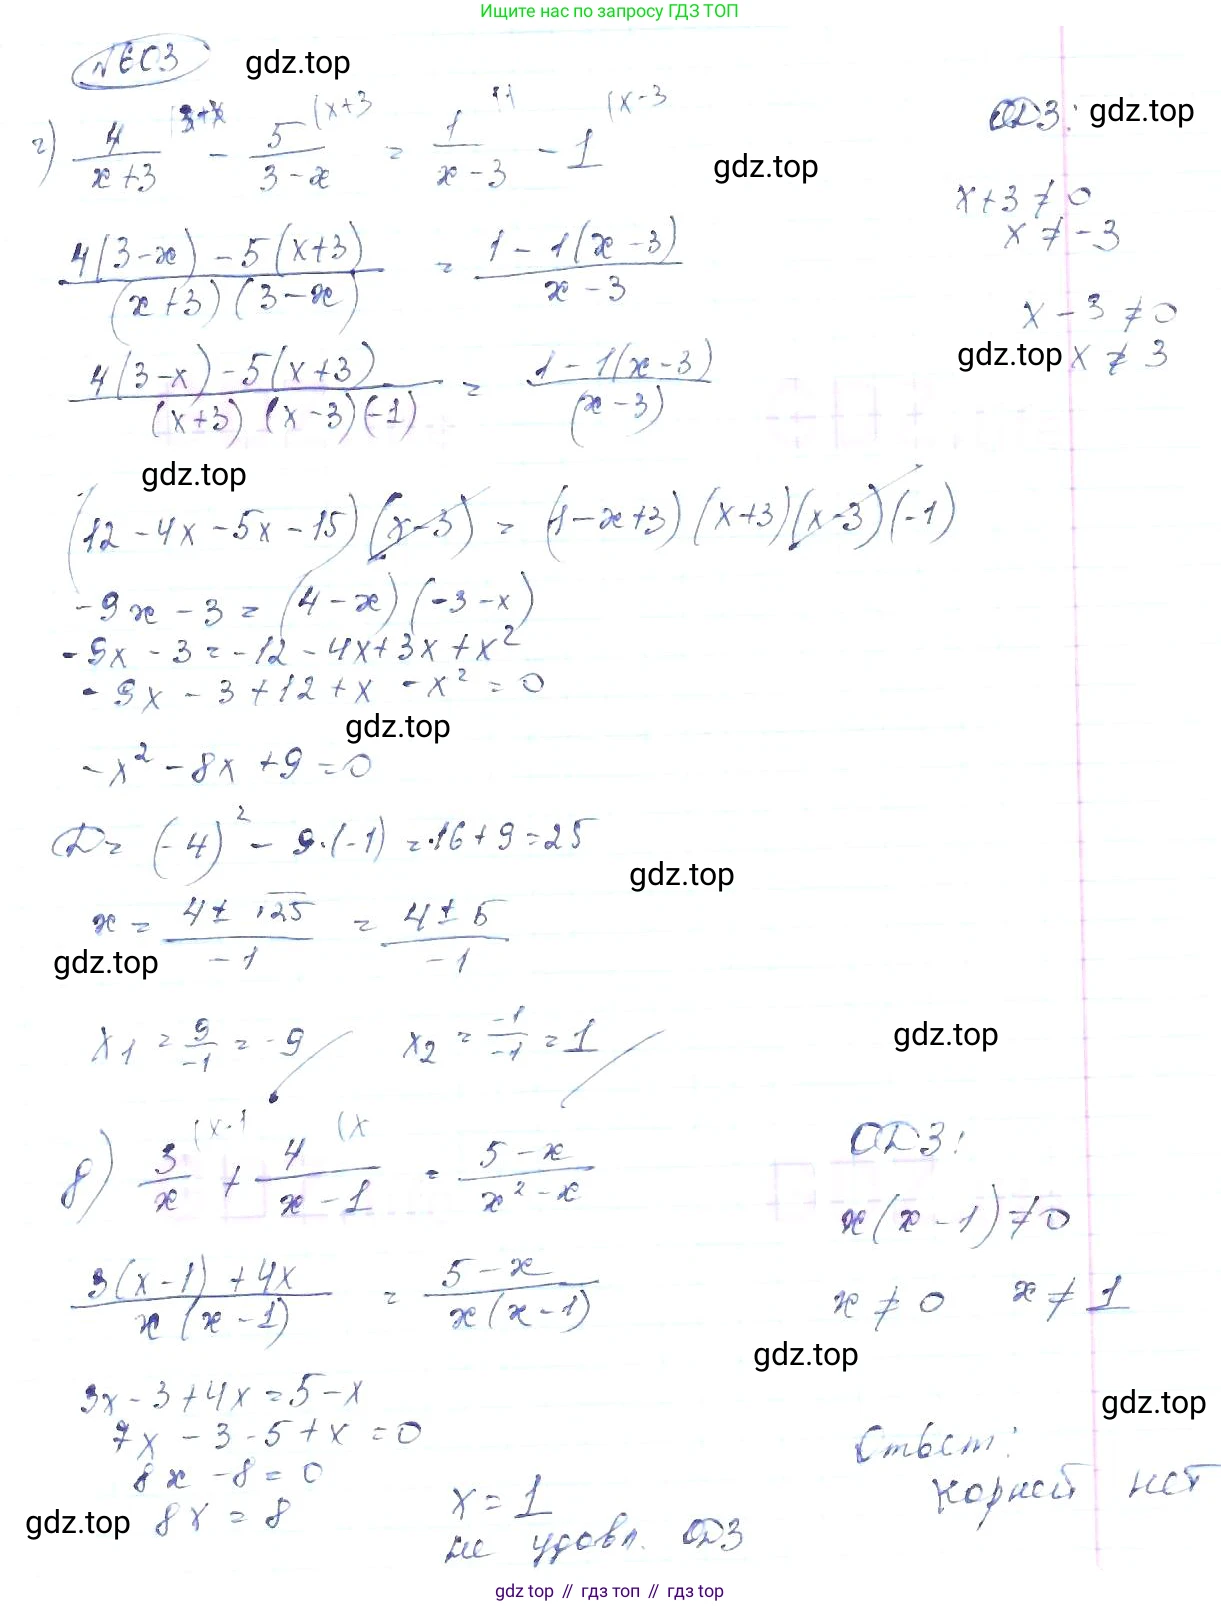 Ищите нас по запросу ГДЗ ТОП
№603
gdz.top
г) 4/(x+3) (3+x − 5/(3−x) (x+3 = 1/(x−3) (1 − 1 (x−3
ОДЗ:
gdz.top
gdz.top
x+3 ≠ 0
x ≠ −3
(4(3−x) −5(x+3))/((x+3)(3−x)) = (1 − 1(x−3))/(x−3)
x − 3 ≠ 0
gdz.top
x ≠ 3
(4(3−x) −5(x+3))/((x+3)(x−3)(−1)) = (1 − 1(x−3))/((x−3))
gdz.top
(12 −4x −5x −15)(x−3) = (1−x+3)(x+3)(x−3)(−1)
−9x − 3 = (4−x)(−3−x)
−9x − 3 = −12 − 4x+3x + x²
−9x − 3 + 12 + x − x² = 0
gdz.top
−x² − 8x + 9 = 0
D = (−4)² − 9·(−1) = 16 + 9 = 25
gdz.top
x = (4± √25)/−1 = (4 ± 5)/−1
gdz.top
x₁ = 9/−1 = −9 x₂ = −1/−1 = 1
gdz.top
д) 3/x (x−1 + 4/(x−1) (x = (5−x)/(x²−x)
ОДЗ:
x(x−1) ≠ 0
(3(x−1) + 4x)/(x(x−1)) = (5−x)/(x(x−1))
x ≠ 0 x ≠ 1
gdz.top
3x − 3 + 4x = 5 − x
gdz.top
7x − 3 − 5 + x = 0
8x − 8 = 0
Ответ:
корней нет
gdz.top
8x = 8
x = 1
не удовл. ОДЗ
gdz top // гдз топ // гдз top